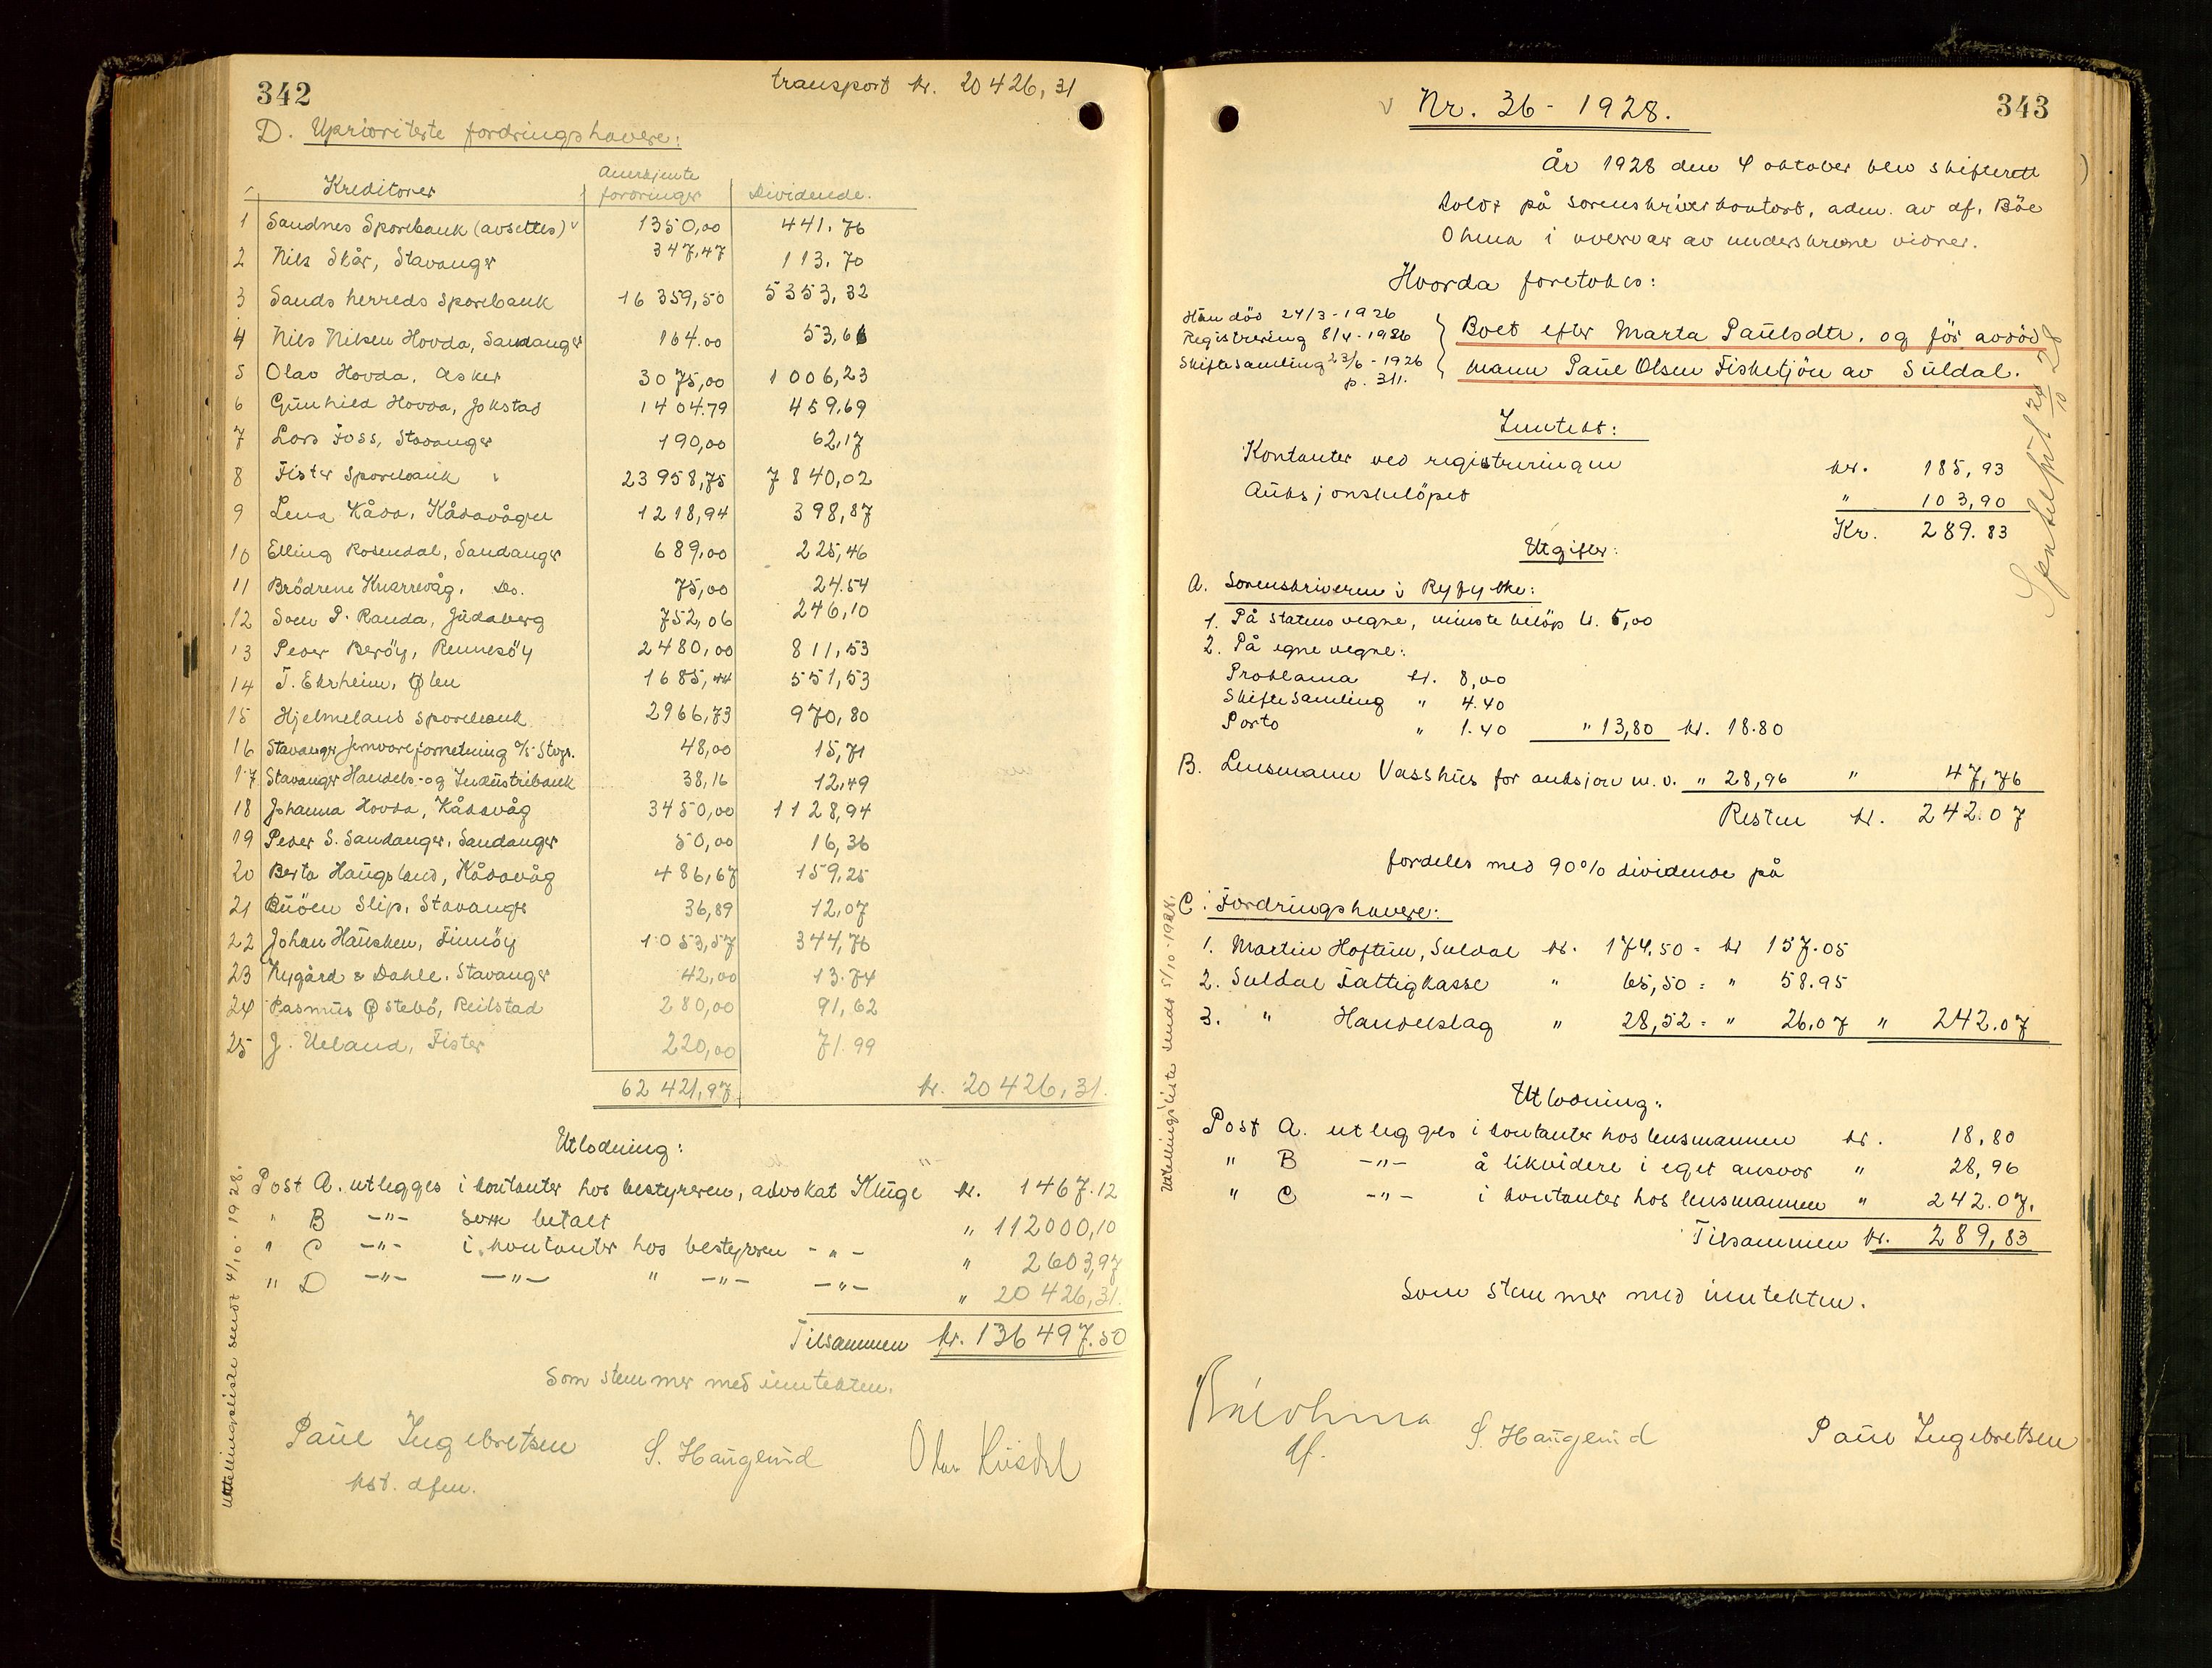 342
transport kr. 20426,31
D. Uprioriterte fordringshavere:
Kreditorer Anerkjente fordringer Dividende.
1 Sandnes Sparebank (avsettes) 1350,00 441.76
2 Nils Skår, Stavanger 347,47 113.70
3 Sands herreds Sparebank 16 359,50 5353,32
4 Nils Nilsen Hovda, Sandanger 164.00 53,66
5 Olav Hovda, Asker 3075,00 1 006,23
6 Gunhild Hovda, Jokstad 1404.79 459.69
7 Lars Foss, Stavanger 190,00 62,17
8 Fister Sparebank 23958,75 7 840,02
9 Lena Kåda, Kådavågen 1218,94 398,87
10 Elling Rosendal, Sandanger 689,00 225,46
11 Brödrene Knarrevåg, Do. 75,00 24.54
12 Sven P. Randa, Judaberg 752,06 246,10
13 Peder Beröy, Rennesöy 2480,00 811,53
14 T. Ekrheim, Ølen 1685,44 551,53
15 Hjelmelands sparebank 2966,73 970,80
16 Stavanger Jernvareforretning A/S Stvgr. 48,00 15,71
17 Stavanger Handels- og Industribank 38,16 12,49
18 Johanna Hovda, Kådavåg 3450,00 1128,94
19 Peder S. Sandanger, Sandanger 50,00 16,36
20 Berta Haugsland, Kådavåg 486,67 159,25
21 Buöen Slip, Stavanger 36,89 12,07
22 Johan Hausken, Finnöy 1053,57 344,76
23 Nygård & Dahle, Stavanger 42,00 13.74
24 Rasmus Østebö, Reilstad 280,00 91,62
25 J. Ueland, Fister 220,00 71.99
62 421,97 kr. 20426,31.
Utlodning:
Post A. utlegges i kontanter hos bestyreren, advokat Kluge kr. 1467.12
" B -"- som betalt " 112000,10
" C -"- i kontanter hos bestyreren -"- " 2603,97
" D -"- -"- " -"- -"- " 20426,31.
Tilsammen kr. 136497.50
Som stemmer med inntekten.
Paul Ingebretsen S. Hauglund
kst. dfm.
Utlodningsliste sendt 4/10-1928.
343
Nr. 36 - 1928.
År 1928 den 4 oktober blev skifterett
holdt på sorenskriverkontoret, adm. av df. Böe
Ohma i overvær av underskrevne vidner.
Hvorda foretokes:
Hun död 24/3-1926
Registrering 8/4-1926
Skiftesamling 23/6-1926
p. 311.
Boet efter Marta Paulsdtr. og för avdöd
mann Paul Olsen Fisketjön av Suldal.
Inntekt:
Kontanter ved registreringen kr. 185,93
Auksjonsbelöpet " 103,90
Kr. 289.83
Utgifter:
A. Sorenskriveren i Ryfylke:
1. På statens vegne, minste belöp kr. 5,00
2. På egne vegne:
Proklama kr. 8,00
Skiftesamling " 4.40
Porto " 1.40 " 13,80 kr. 18.80
B. Lensmann Vasshus for auksjon m.v. " 28,96 " 47,76
Resten kr. 242.07
fordeles med 90% dividende på
C. Fordringshavere:
1. Martin Hoftun, Suldal kr. 174,50 = kr 157.05
2. Suldal Fattigkasse " 65,50 = " 58.95
3. " Handelslag " 28,52 = " 26.07 " 242.07
Utlodning:
Post A. utlegges i kontanter hos lensmannen kr. 18,80
" B -"- å likvidere i eget ansvar " 28,96
" C -"- i kontanter hos lensmannen " 242.07.
Tilsammen kr. 289,83
Som stemmer med inntekten.
Böe Ohma S. Hauglund Paul Ingebretsen
df.
Utlodningsliste sendt 5/10-1928.
24/10 28